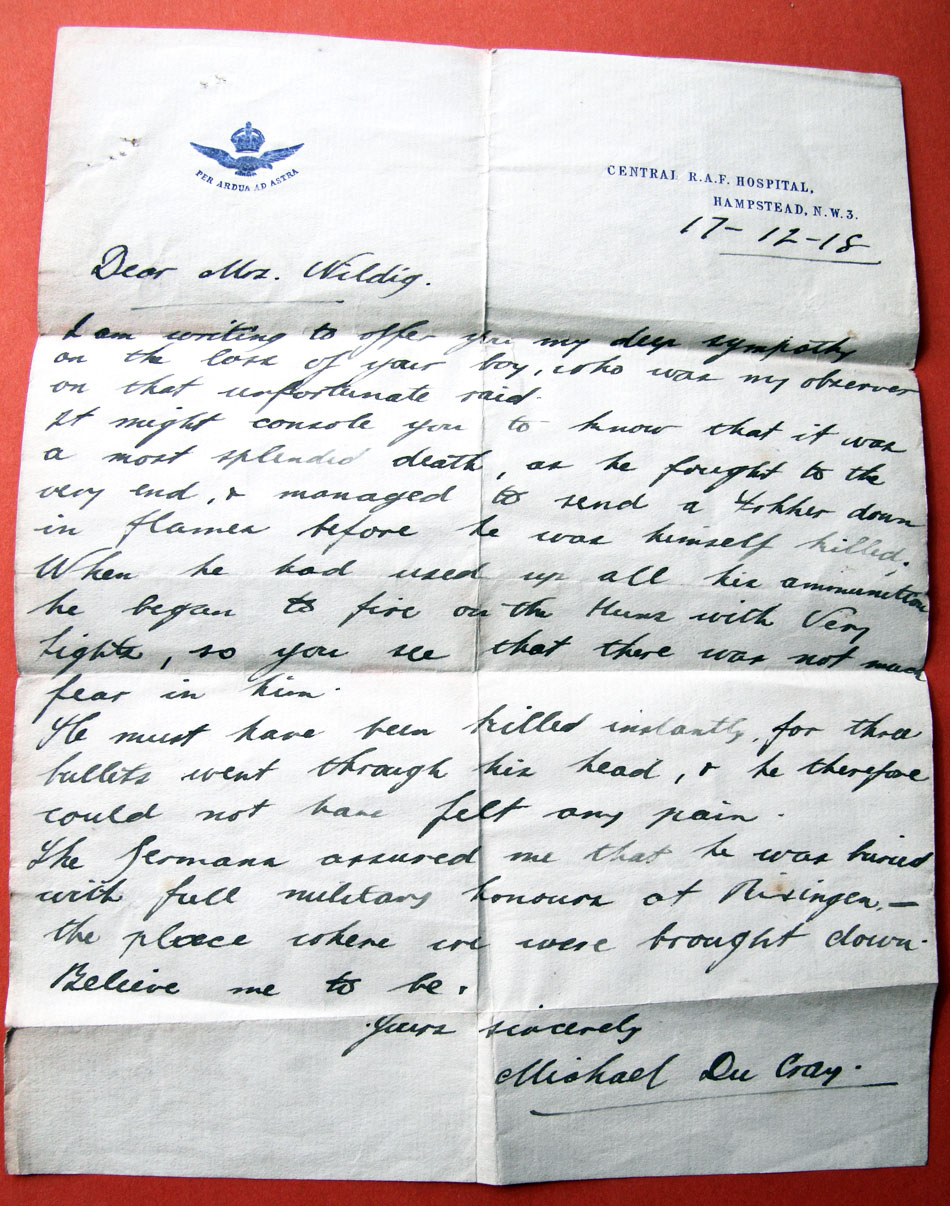 PER ARDUA AD ASTRA
CENTRAL R.A.F. HOSPITAL,
HAMPSTEAD, N.W.3.
17-12-18
Dear Mrs. Wildig.
I am writing to offer you my deep sympathy
on the loss of your boy, who was my observer
on that unfortunate raid.
It might console you to know that it was
a most splendid death, as he fought to the
very end, & managed to send a Fokker down
in flames before he was himself killed.
When he had used up all his ammunition
he began to fire on the Huns with Very
lights, so you see that there was not much
fear in him.
He must have been killed instantly, for three
bullets went through his head, & he therefore
could not have felt any pain.
The Germans assured me that he was buried
with full military honours at Rixingen, —
the place where we were brought down.
Believe me to be,
Yours sincerely
Michael Du Cray.